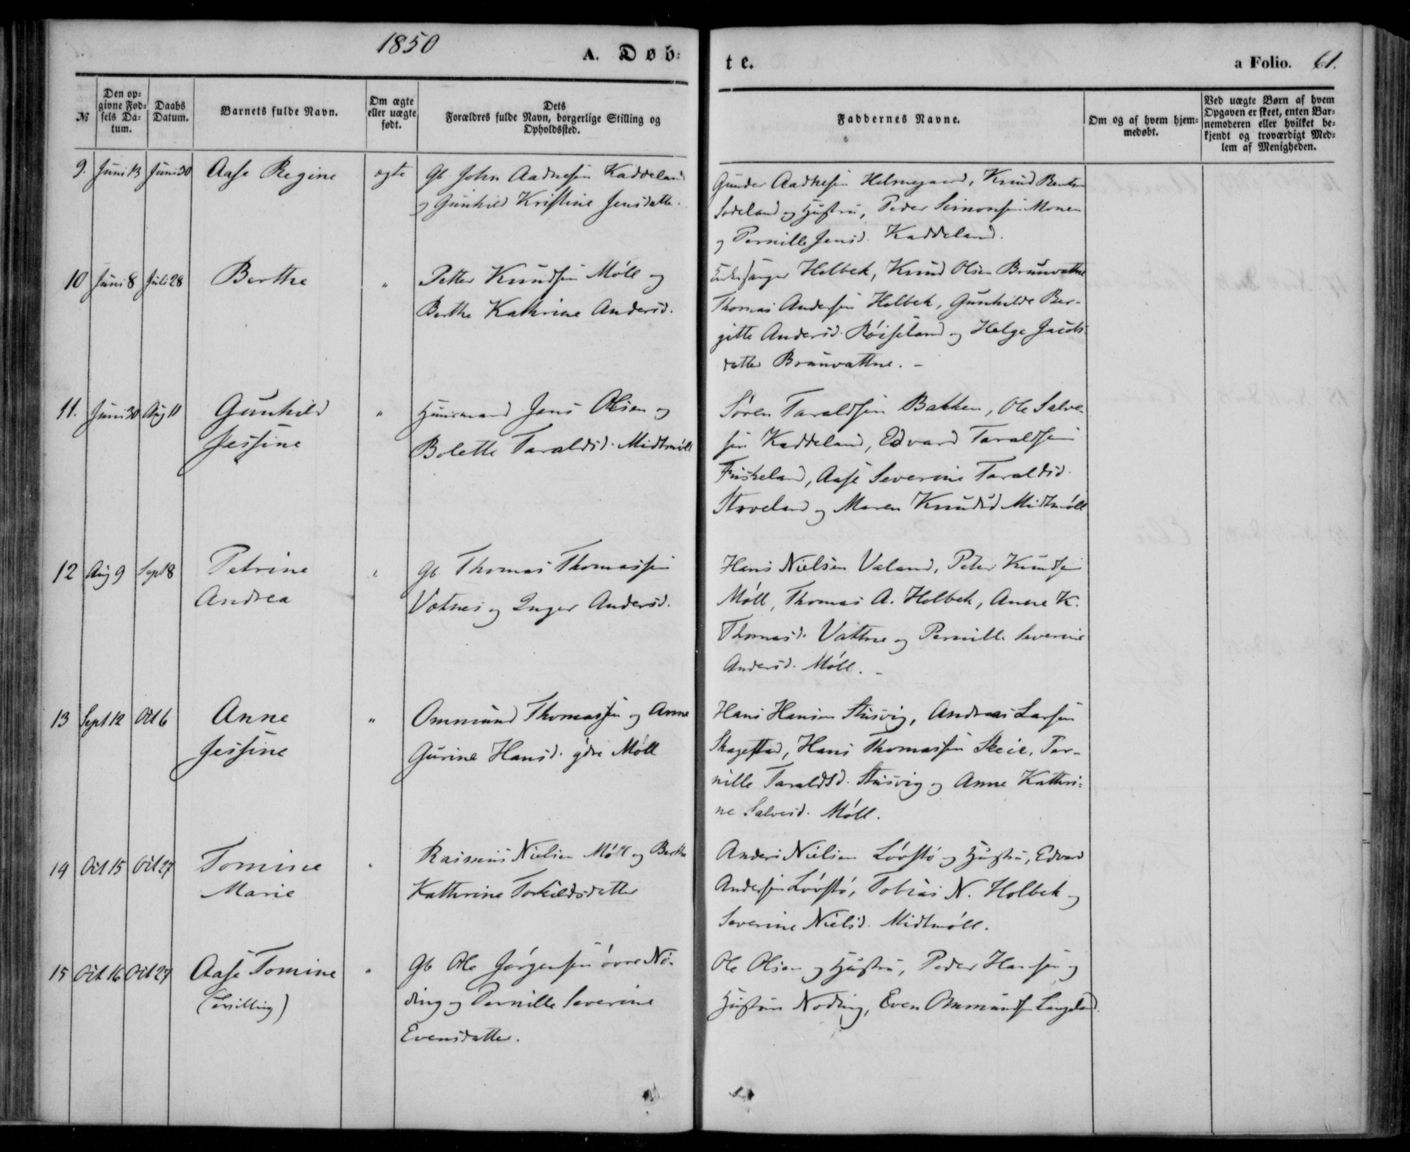 1850
A. Døb-
te.
a Folio. 61.
№
Den op-
givne Fød-
sels Da-
tum.
Daabs
Datum.
Barnets fulde Navn.
Om ægte
eller uægte
født.
Dets
Forældres fulde Navn, borgerlige Stilling og
Opholdssted.
Faddernes Navne.
Om og af hvem hjem-
medøbt.
Ved uægte Børn af hvem
Opgaven er skeet, enten Bar-
nemoderen eller hvilket be-
kjendt og troværdigt Med-
lem af Menigheden.
9. Juni 13 Juni 30 Aase Regine ægte Gb John Aadnesen Kaddeland
og Gunhild Kristine Jensdatter.
Gunder Aadnesen Helsmgaard, Knud Bentsen
Sodeland og Hustru, Peder Simonsen Monen
og Pernille Jensd. Kaddeland.
10 Juni 8 Juli 28 Berthe " Petter Knudsen Møll og
Berthe Kathrine Andersd.
Kirkesanger Holbek, Knud Olsen Brunvatne
Thomas Andersen Holbek, Gunhilde Ber-
gitte Andersd. Røiseland og Helge Jacobs
datter Brunvattne. -
11. Juni 30 Aug 11 Gunhild
Jessine
" Huusmand Jens Olsen og
Bolette Taraldsd. Midtmøll
Søren Taraldsen Bakken, Ole Salve-
sen Kaddeland, Edvard Taraldsen
Fuskeland, Aase Severine Taraldsd.
Staveland og Maren Knudsd Midtmøll
12 Aug 9 Sept 8 Petrine
Andrea
" Gb Thomas Thomassen
Vatnes og Inger Andersd.
Hans Nielsen Valand, Peter Knudsen
Møll, Thomas A. Holbek, Anne K.
Thomasd. Vattne og Pernille Severine
Andersd. Møll. -
13 Sept 12 Oct 6 Anne
Jessine
" Ommund Thomassen og Anne
Gurine Hansd. ydre Møll
Hans Hansen Stusvig, Andreas Larsen
Skagestad, Hans Thomassen Skeie, Per-
nille Taraldsd. Stusvig og Anne Kathri-
ne Salvesd. Møll.
14 Oct 15 Oct 27 Tomine
Marie
" Rasmus Nielsen Møll og Berthe
Kathrine Torkildsdatter
Anders Nielsen Løvstø og Hustru, Edvard
Andersen Løvstø, Tobias N. Holbek og
Severine Nielsd. Midtmøll.
15 Oct 16 Oct 27 Aase Tomine
(tvilling)
" Gb Ole Jørgensen øvre No-
ding og Pernille Severine
Evensdatter.
Ole Olsen og Hustru, Peder Hansen og
Hustru Noding, Even Ommundsen Langeland.